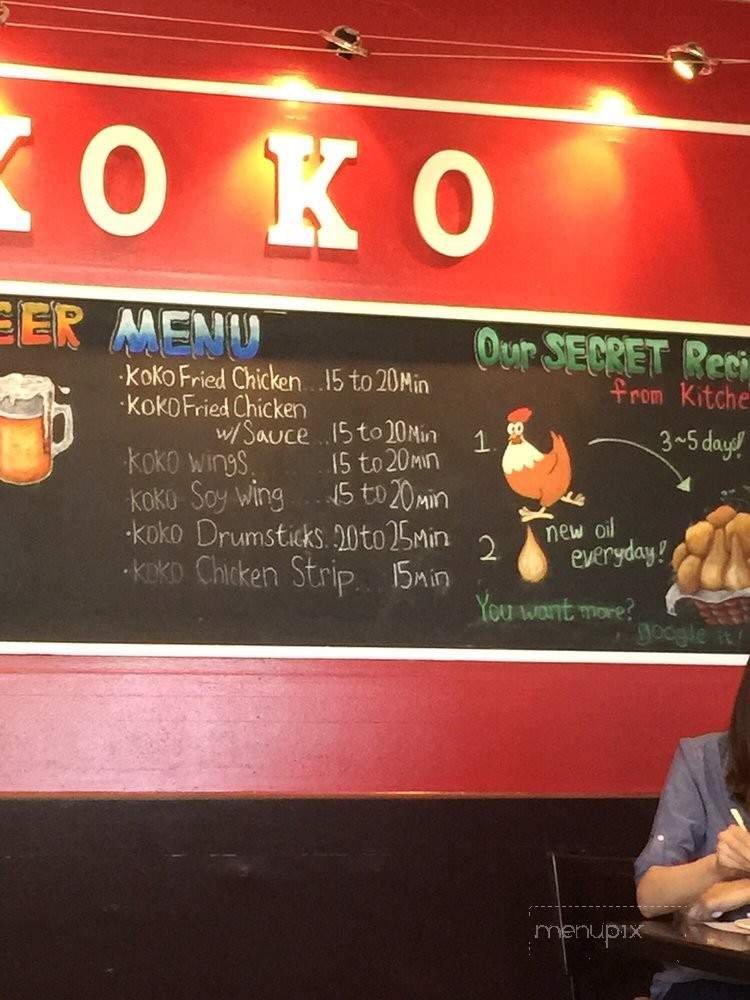 KOKO
EER
MENU
·KOKO Fried Chicken...15 to 20Min
·KOKO Fried Chicken
w/Sauce...15 to 20Min
·KOKO wings......15 to 20Min
·KOKO Soy wing.....15 to 20Min
·KOKO Drumsticks..20 to 25Min
·KOKO Chicken Strip... 15Min
Our SECRET Reci
from Kitche
1.
3~5 days!
2
new oil
everyday!
You want more?
google it!
menupix